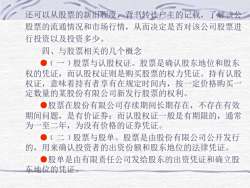 还可以从股票的新旧程度、背书转让户主的记载，了解该公
股票的流通情况和市场行情，从而决定是否对该公司股票进
行投资以及投资多少。
四、与股票相关的几个概念
●（一）股票与认股权证。股票是确认股东地位和股东
权的凭证，而认股权证则是购买股票的权力凭证。持有认股
权证，意味着持有者享有在规定时间内，按一定价格购买一
定数量的某股份有限公司新发行股票的权利。
●股票在股份有限公司存续期间长期存在，不存在有效
期间问题，是有价证券；而认股权证一般是有期限的，通常
为一至二年，为没有价格的证券凭证。
●（二）股票与股单。股票是由股份有限公司公开发行
的，用来确认投资者的出资份额和股东地位的法律凭证。
●股单是由有限责任公司发给股东的出资凭证和确立股
东地位的凭证。